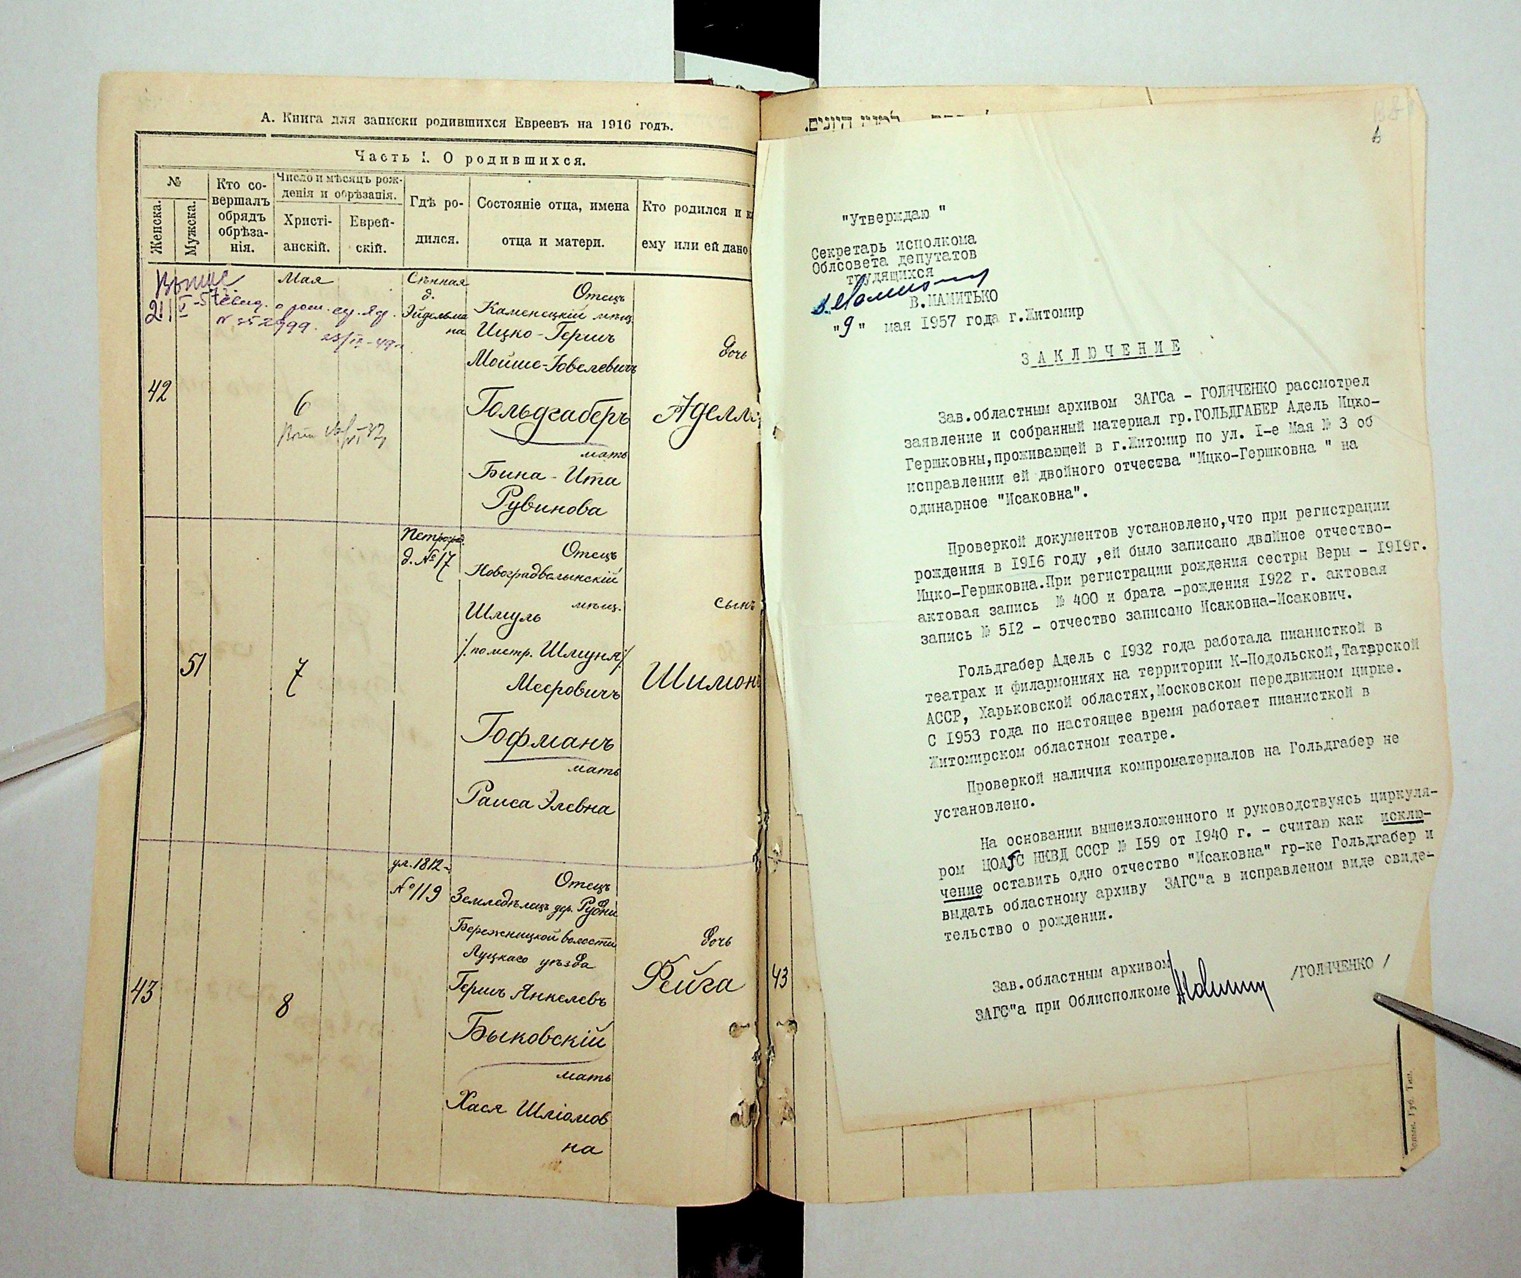 А. Книга для записки родившихся Евреевъ на 1916 годъ.
Часть I. О родившихся.
№
Женска.
Мужска.
Кто со-
вершалъ
обрядъ
обрѣза-
нія.
Число и мѣсяцъ рож-
денія и обрѣзанія.
Христі-
анскій.
Еврей-
скій.
Гдѣ ро-
дился.
Состояніе отца, имена
отца и матери.
Кто родился и к
ему или ей дано
Мая
Сѣнная
д.
Эйдельма
на
Отецъ
Каменецкій мѣщ.
Ицко-Гершъ
Мойше-Іовелевичъ
Дочь
42
6
Гольдгаберъ
Аделл
мать
Бина-Ита
Рувинова
Петрогр.
д. № 17
Отецъ
Новоградволынскій
мѣщ.
сынъ
Шмуль
/по метр. Шмуня/
51
7
Мееровичъ
Шимонъ
Гофманъ
мать
Раиса Элевна
ул. 1812
№ 119
Отецъ
Земледѣлецъ дер. Рудни
Бережницкой волости
Луцкаго уѣзда
Дочь
43
8
Гершъ Янкелевъ
Фейга
43
Быковскій
мать
Хася Шліомов
на
"Утверждаю "
Секретарь исполкома
Облсовета депутатов
трудящихся
В.МАМИТЬКО
"9" мая 1957 года г.Житомир
ЗАКЛЮЧЕНИЕ
Зав.областным архивом ЗАГСа - ГОЛЯЧЕНКО рассмотрел
заявление и собранный материал гр.ГОЛЬДГАБЕР Адель Ицко-
Гершковны,проживающей в г.Житомир по ул. I-е Мая № 3 об
исправлении ей двойного отчества "Ицко-Гершковна " на
одинарное "Исаковна".
Проверкой документов установлено,что при регистрации
рождения в 1916 году ,ей было записано двойное отчество-
Ицко-Гершковна.При регистрации рождения сестры Веры - 1919г.
актовая запись № 400 и брата -рождения 1922 г. актовая
запись № 512 - отчество записано Исаковна-Исакович.
Гольдгабер Адель с 1932 года работала пианисткой в
театрах и филармониях на территории К-Подольской,Татарской
АССР, Харьковской областях,Московском передвижном цирке.
С 1953 года по настоящее время работает пианисткой в
Житомирском областном театре.
Проверкой наличия компроматериалов на Гольдгабер не
установлено.
На основании вышеизложенного и руководствуясь циркуля-
ром ЦОАГС НКВД СССР № 159 от 1940 г. - считаю как исклю-
чение оставить одно отчество "Исаковна" гр-ке Гольдгабер и
выдать областному архиву ЗАГС"а в исправленом виде свиде-
тельство о рождении.
Зав.областным архивом
ЗАГС"а при Облисполкоме /ГОЛЯЧЕНКО /